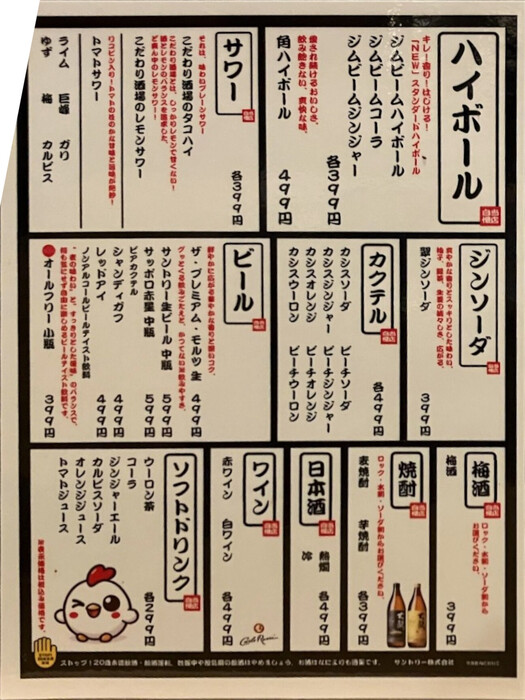 ハイボール
当店
自慢
キレ!香り!はじける!
「NEW」スタンダードハイボール
ジムビームハイボール
ジムビームコーラ
ジムビームジンジャー
各399円
愛され続けるおいしさ、
飲み飽きない、爽快な味。
角ハイボール
499円
サワー
それは、味わいプレーンサワー
こだわり酒場のタコハイ
こだわり酒場とは、しっかりレモンで甘くない!
ど真ん中のレモンサワー!
こだわり酒場のレモンサワー
各399円
トマトサワー
ライム 巨峰 ガリ
ゆず 梅 カルピス
ジンソーダ
当店
自慢
爽やかな香りとスッキリとした味わい。
翠ジンソーダ
399円
カクテル
当店
自慢
カシスソーダ ピーチソーダ
カシスジンジャー ピーチジンジャー
カシスオレンジ ピーチオレンジ
カシスウーロン ピーチウーロン
各499円
ビール
ザ・プレミアム・モルツ 生
499円
サントリー生ビール 中瓶
599円
サッポロ赤星 中瓶
599円
ビアカクテル
シャンディガフ
499円
レッドアイ
499円
ノンアルコールビールテイスト飲料
オールフリー 小瓶
399円
梅酒
当店
自慢
ロック・水割・ソーダ割から
お選びください。
梅酒
399円
焼酎
当店
自慢
ロック・水割・ソーダ割からお選びください。
麦焼酎 芋焼酎
各399円
日本酒
当店
自慢
熱燗
冷
各499円
ワイン
当店
自慢
赤ワイン 白ワイン
各499円
ソフトドリンク
当店
自慢
ウーロン茶
コーラ
ジンジャーエール
カルピスソーダ
オレンジジュース
トマトジュース
各299円
※表示価格は税込み価格です。
ストップ!20歳未満飲酒・飲酒運転。妊娠中や授乳期の飲酒はやめましょう。お酒はなによりも適量です。
サントリー株式会社